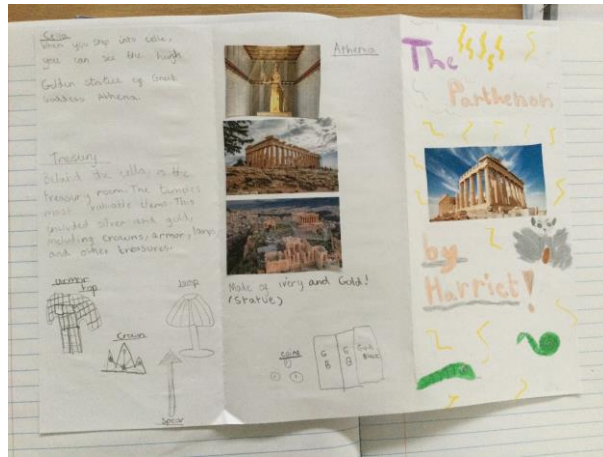 Cella
When you step into cella,
you can see the hugh
Golden statue of Greek
Goddess Athena.
Treasury
Behind the cella, is the
treasury room. The temples
most valuable items. This
included silver and gold,
including crowns, armor, lamps
and other treasures.
armor
top
lamp
Crown
Spear
Athena
Made of ivery and Gold!
(statue)
coins
G
B
G
B
Gold
The
Parthenon
by
Harriet!